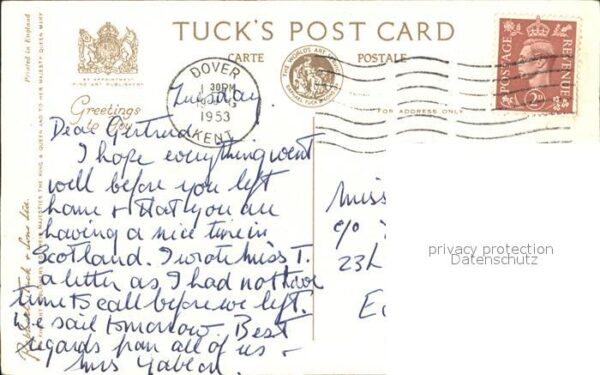 TUCK'S POST CARD
CARTE POSTALE
BY APPOINTMENT
FINE ART PUBLISHERS
Printed in England
Greetings
to You
DOVER
KENT
1953
POSTAGE
REVENUE
FOR ADDRESS ONLY
Tuesday.
Dear Gertrude
I hope everything went
well before you left
home & that you are
having a nice time in
Scotland. I wrote Miss T.
a letter as I had not have
time to call before we left.
We sail tomorrow. Best
regards from all of us -
Mrs
Miss
c/o
23
privacy protection
Datenschutz